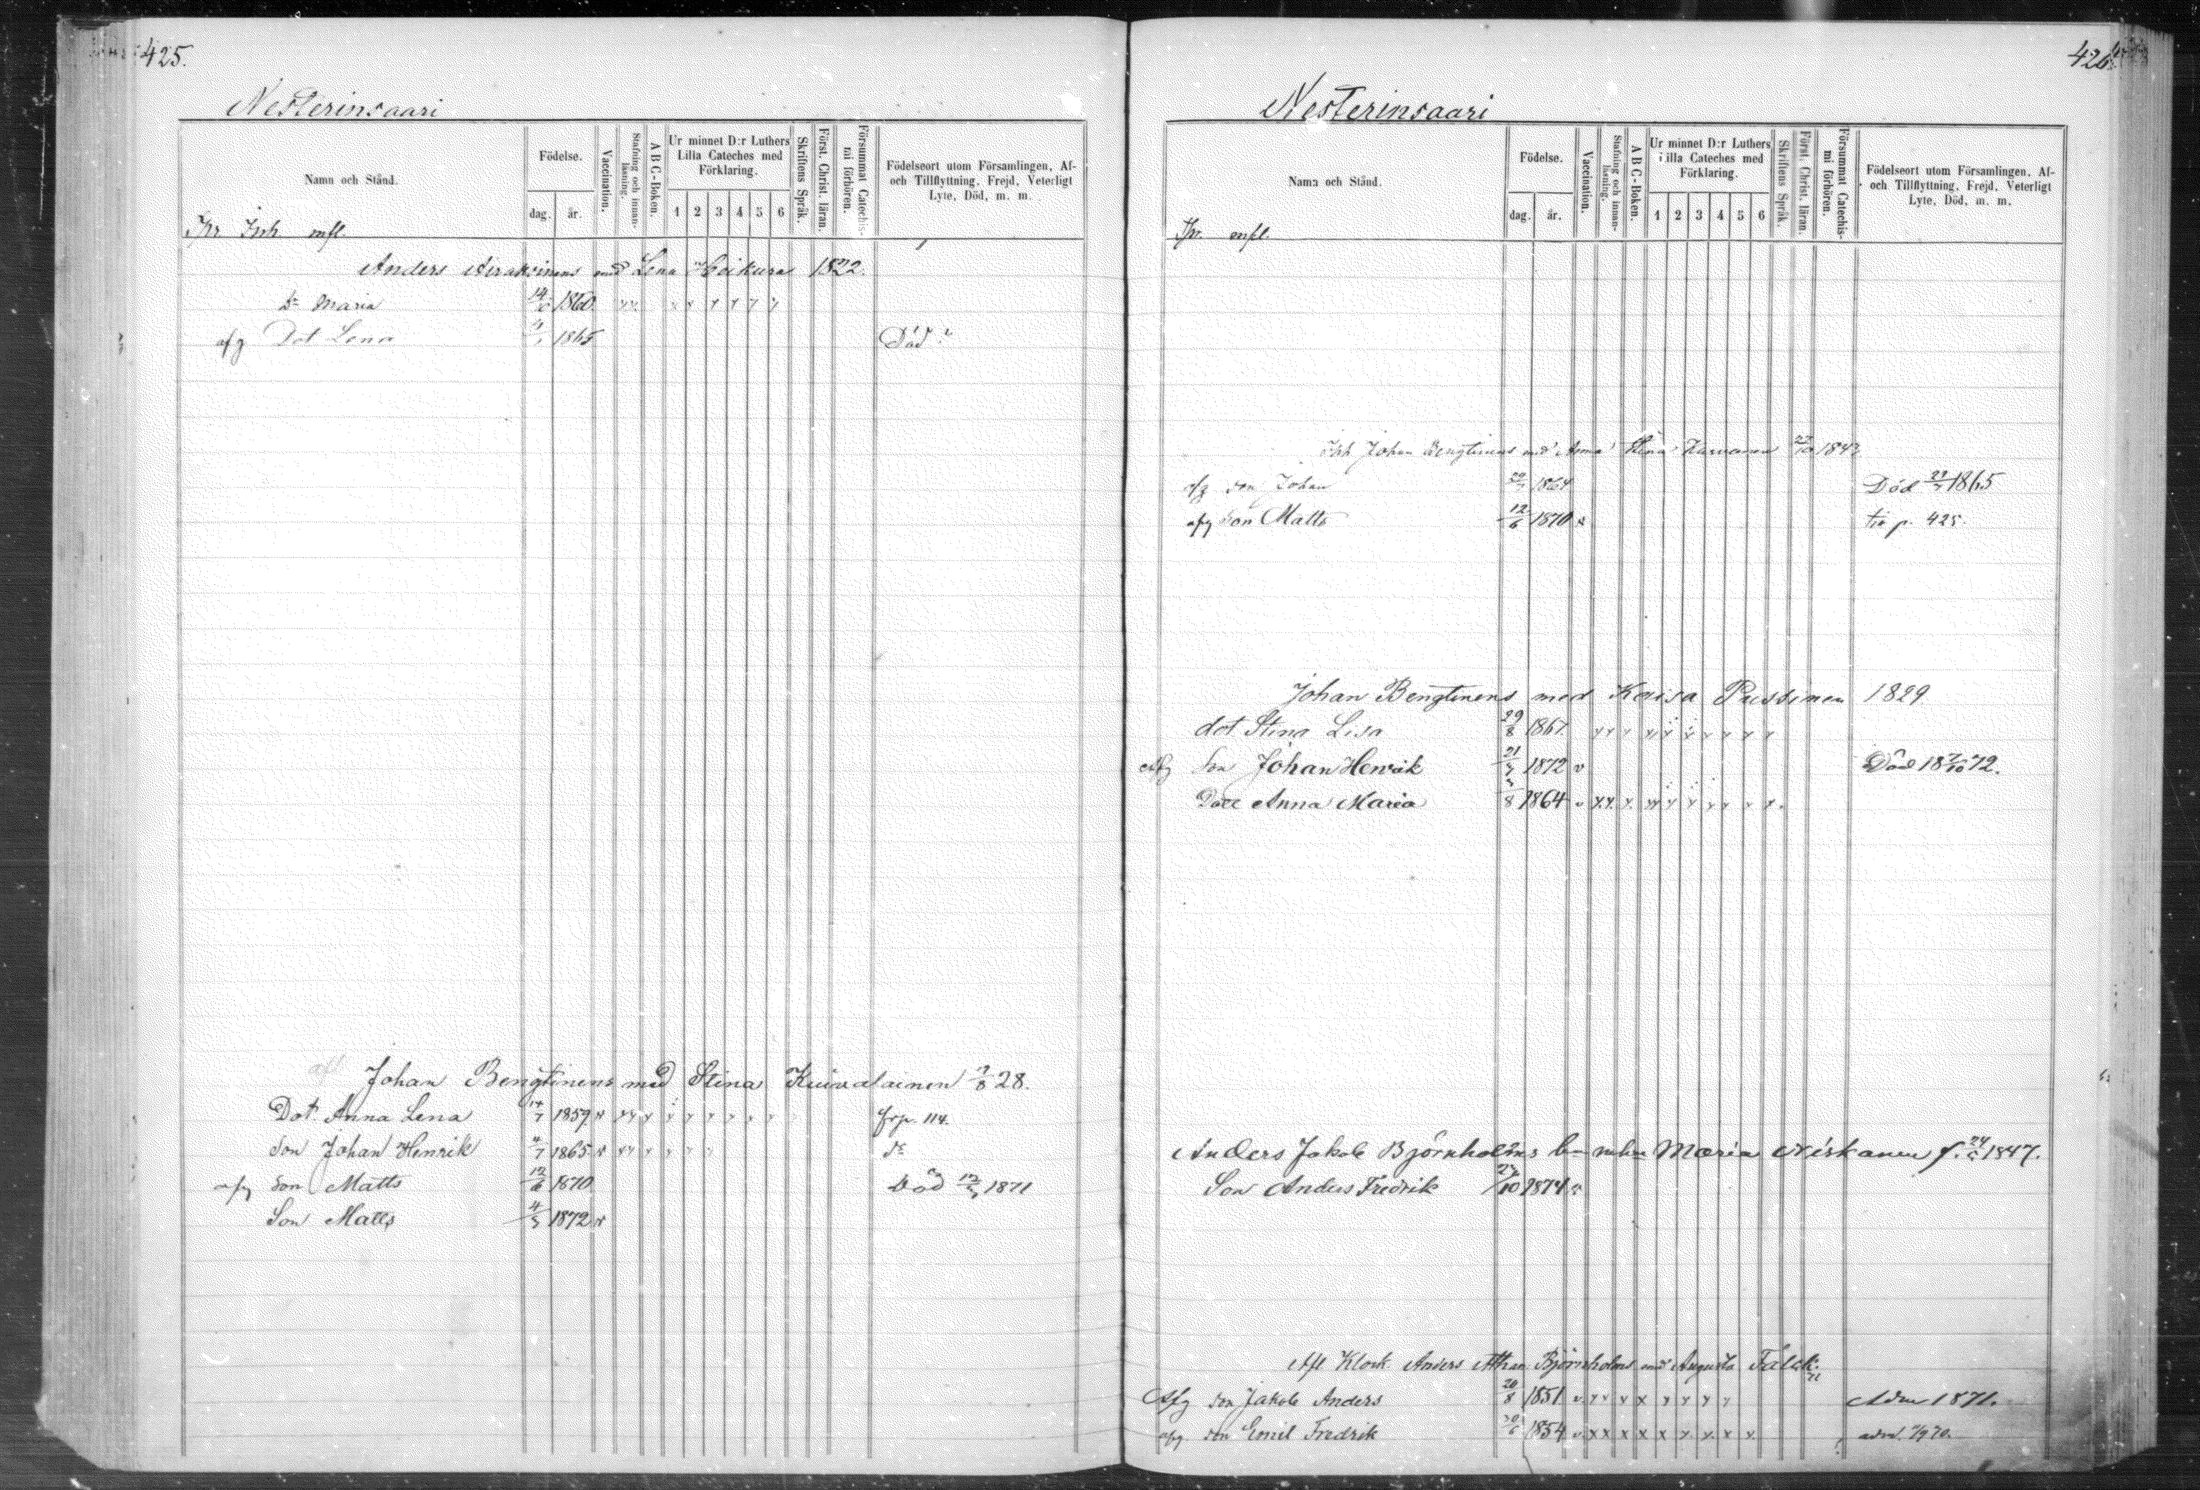 425.
Nesterinsaari
Namn och Stånd.
Födelse.
dag. år.
Vaccination.
Stafning och innan-läsning.
A B C-Boken.
Ur minnet D:r Luthers Lilla Cateches med Förklaring.
1 2 3 4 5 6
Skriftens Språk.
Först. Christ. läran.
Försummat Catechis-mi förhören.
Födelseort utom Församlingen, Af- och Tillflyttning, Frejd, Veterligt Lyte, Död, m. m.
Inh. mfl.
Anders med Lena Heikura 1822.
Maria 1860
afg Dot Lena 1865 Död
Johan Bengtinens med Stina Kuivalainen 7/8 28.
Dot. Anna Lena 14/7 1859 frp. 114.
Son Johan Henrik 4/7 1865 d:o
afg Son Matts 12/6 1870 Död 1871
Son Matts 4/3 1872
426.
Nesterinsaari
Namn och Stånd.
Födelse.
dag. år.
Vaccination.
Stafning och innan-läsning.
A B C-Boken.
Ur minnet D:r Luthers Lilla Cateches med Förklaring.
1 2 3 4 5 6
Skriftens Språk.
Först. Christ. läran.
Försummat Catechis-mi förhören.
Födelseort utom Församlingen, Af- och Tillflyttning, Frejd, Veterligt Lyte, Död, m. m.
mfl.
Inh Johan Bengtinens med Anna Stina Karvanen 1843
afg Son Johan 1864 Död 1865
afg Son Matts 12/6 1870 p. 425.
Johan Bengtinens med Kaisa Pussinen 1829
dot Stina Lisa 29/8 1867
Afg Son Johan Henrik 21/7 1872 Död 18 7/10 72.
Dott Anna Maria 1864
Anders Jakob Björnholms Maria Niskanen f. 1847.
Son Anders Fredrik 1874
Afl Klock. Anders Björnholms med Augusta Falck:
Afg Son Jakob Anders 20/8 1851 Adm 1871.
afg Son Emil Fredrik 1854